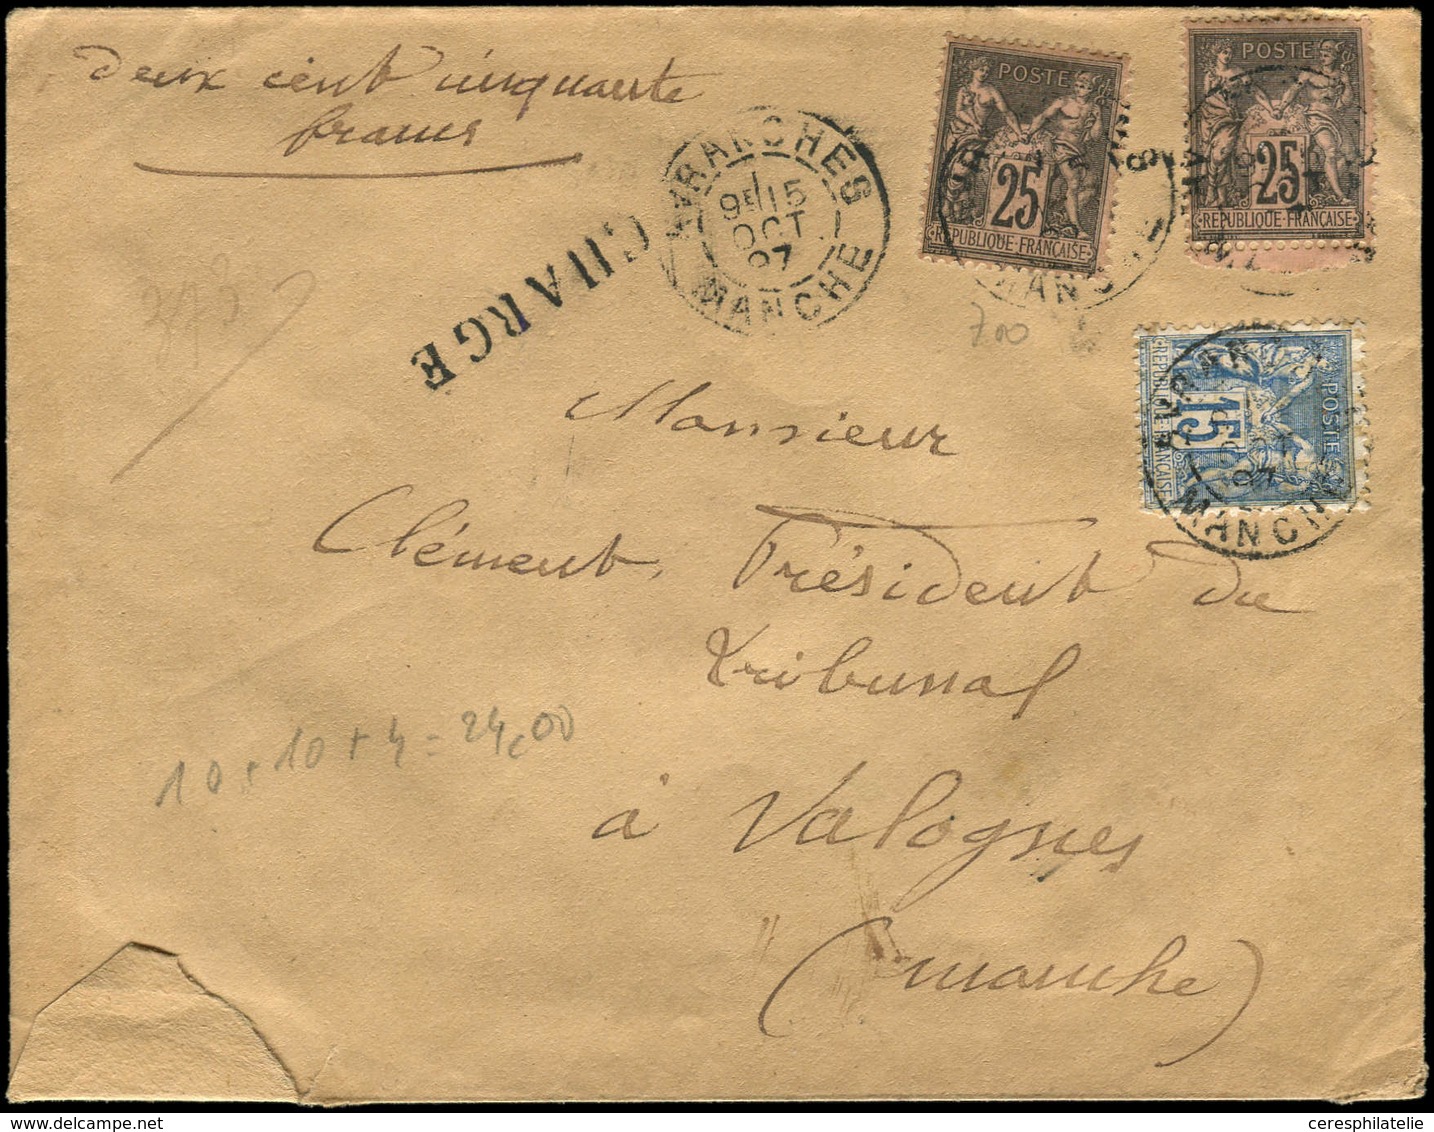 deux cent cinquante
francs
CHARGE
AVRANCHES
9E 15
OCT
97
MANCHE
POSTE
25
REPUBLIQUE FRANÇAISE
POSTE
25
REPUBLIQUE FRANÇAISE
700
POSTE
15
REPUBLIQUE FRANÇAISE
OCT
97
MANCHE
Monsieur
Clément, Président du
tribunal
à Valognes
(manche)
10 + 10 + 4 = 24,00
ceresphilatelie.com